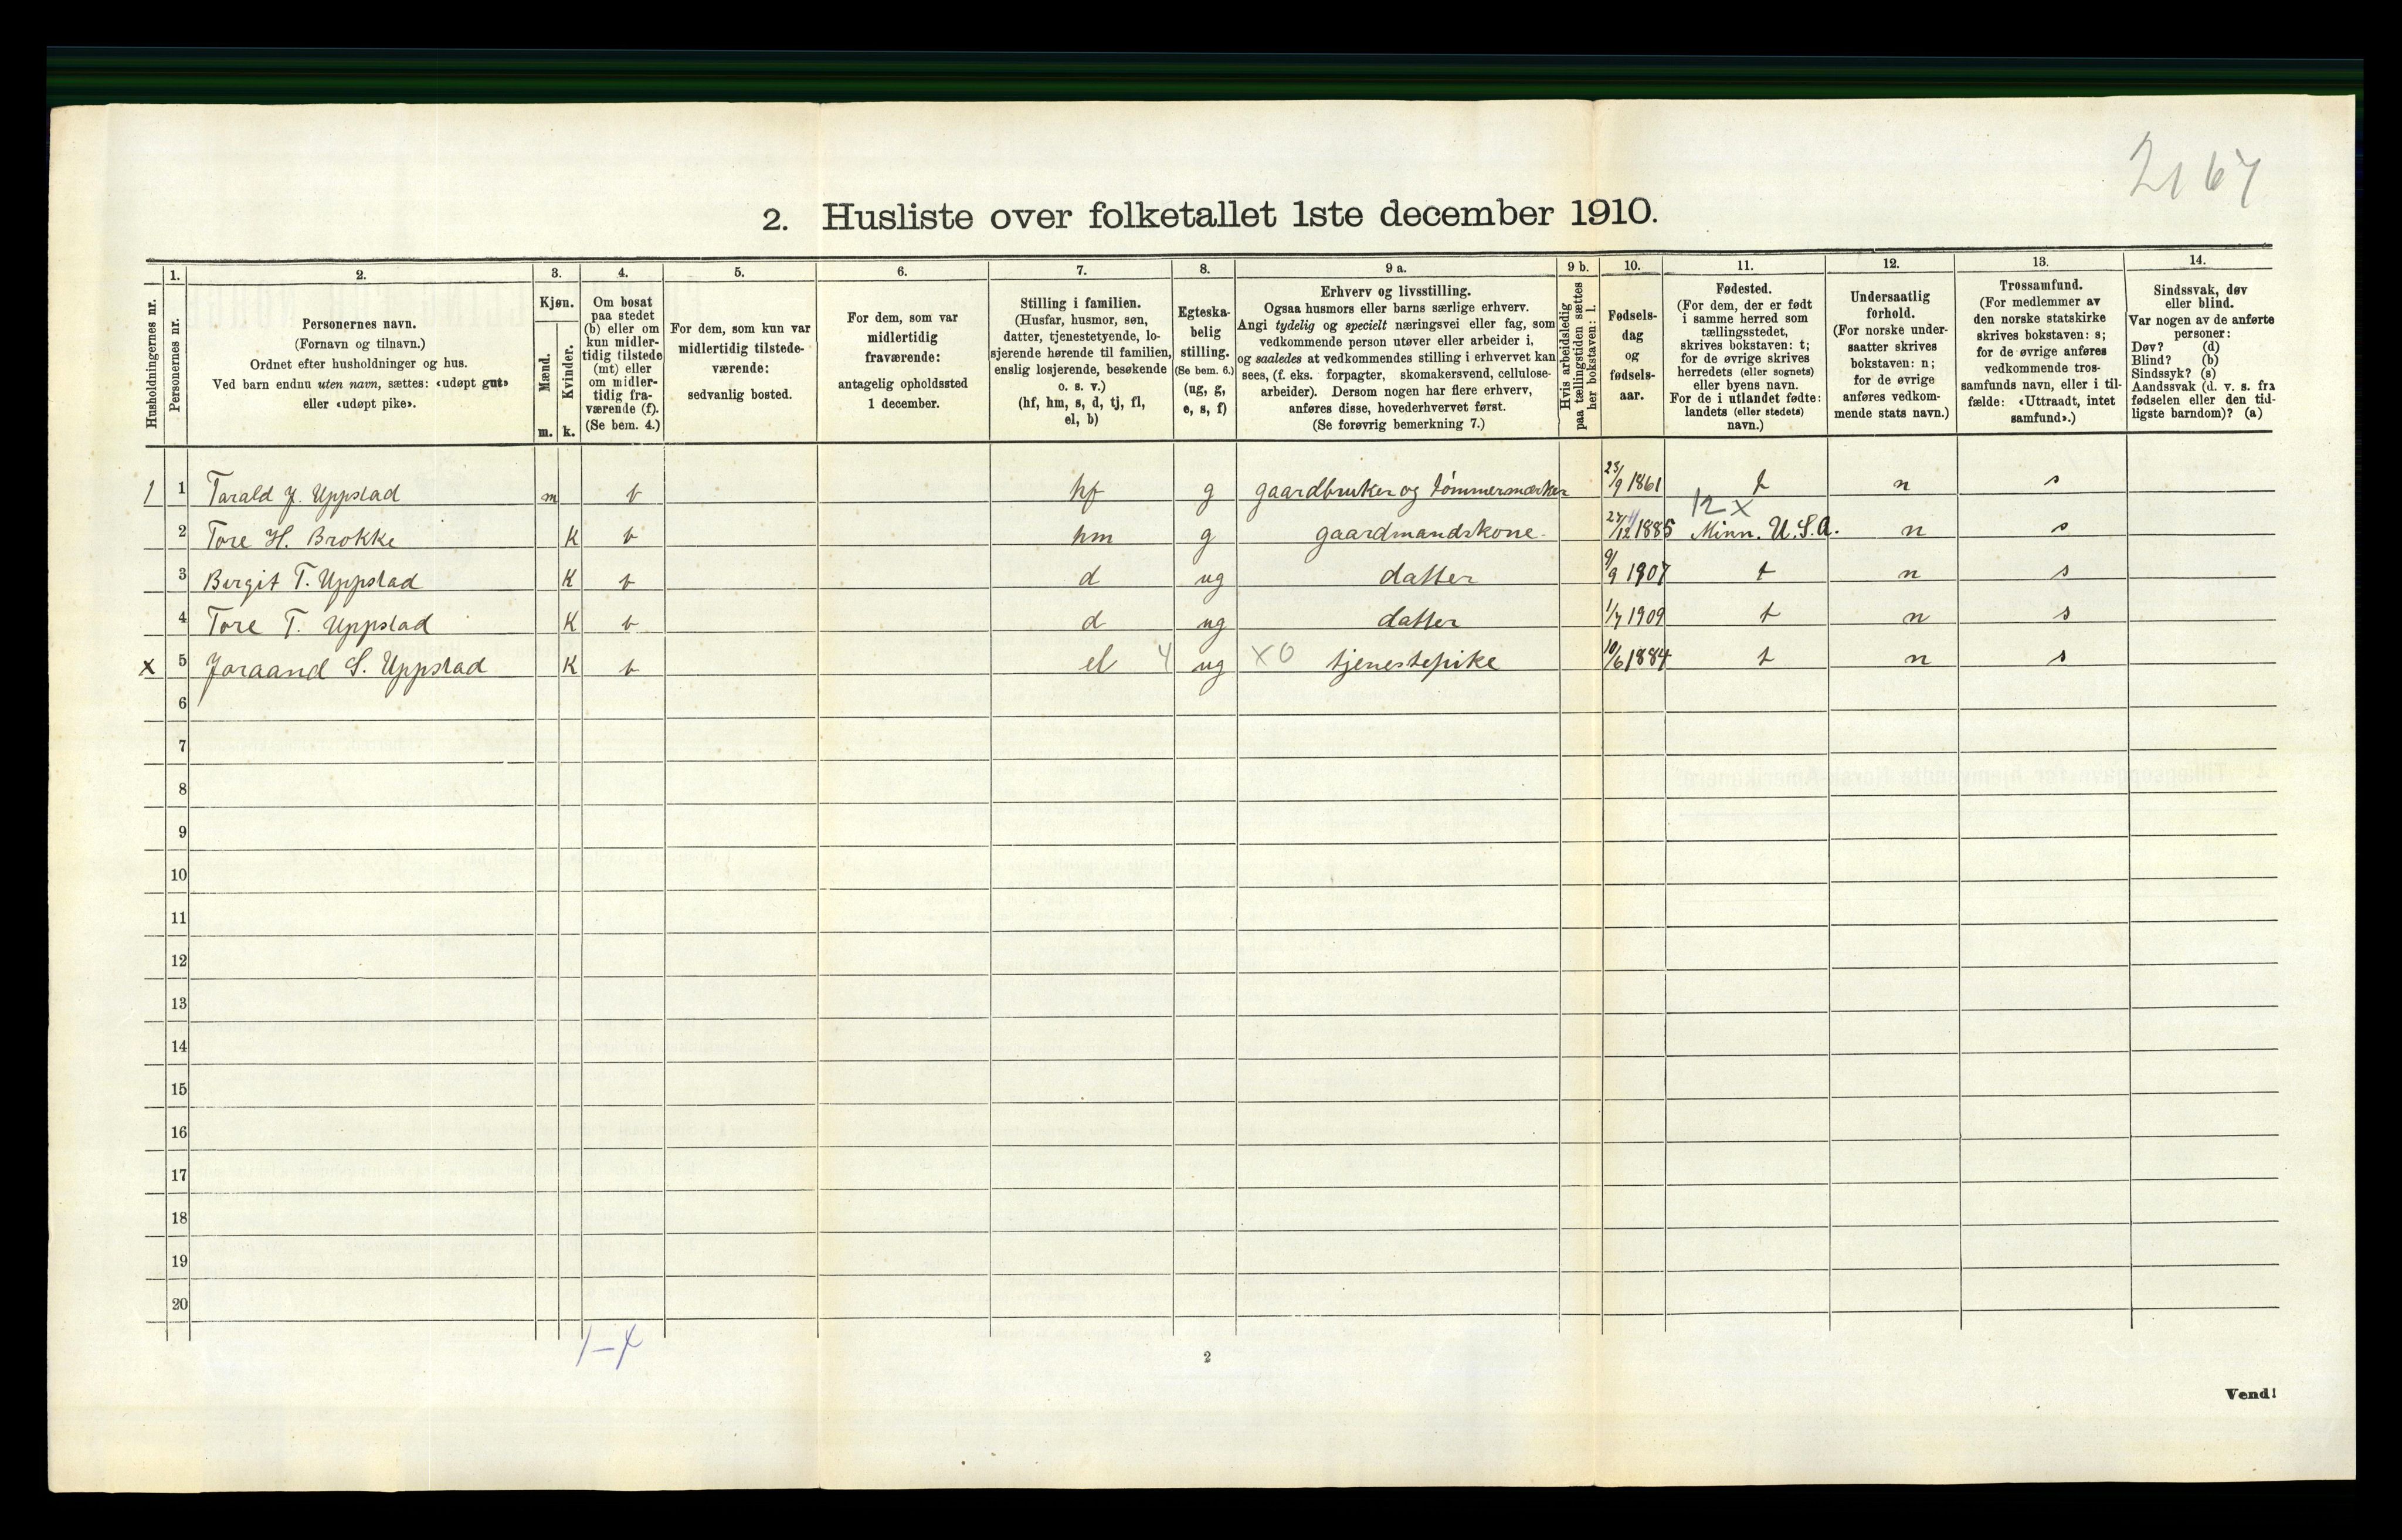 2167
2. Husliste over folketallet 1ste december 1910.
Husholdningernes nr.
1.
Personernes nr.
2.
Personernes navn.
(Fornavn og tilnavn.)
Ordnet efter husholdninger og hus.
Ved barn endnu uten navn, sættes: «udøpt gut»
eller «udøpt pike».
3.
Kjøn.
Mænd.
m.
Kvinder.
k.
4.
Om bosat
paa stedet
(b) eller om
kun midler-
tidig tilstede
(mt) eller
om midler-
tidig fra-
værende (f).
(Se bem. 4.)
5.
For dem, som kun var
midlertidig tilstede-
værende:
sedvanlig bosted.
6.
For dem, som var
midlertidig
fraværende:
antagelig opholdssted
1 december.
7.
Stilling i familien.
(Husfar, husmor, søn,
datter, tjenestetyende, lo-
sjerende hørende til familien,
enslig losjerende, besøkende
o. s. v.)
(hf, hm, s, d, tj, fl,
el, b)
8.
Egteska-
belig
stilling.
(Se bem. 6.)
(ug, g,
e, s, f)
9 a.
Erhverv og livsstilling.
Ogsaa husmors eller barns særlige erhverv.
Angi tydelig og specielt næringsvei eller fag, som
vedkommende person utøver eller arbeider i,
og saaledes at vedkommendes stilling i erhvervet kan
sees, (f. eks. forpagter, skomakersvend, cellulose-
arbeider). Dersom nogen har flere erhverv,
anføres disse, hovederhvervet først.
(Se forøvrig bemerkning 7.)
9 b.
Hvis arbeidsledig
paa tællingstiden sættes
her bokstaven: l.
10.
Fødsels-
dag
og
fødsels-
aar.
11.
Fødested.
(For dem, der er født
i samme herred som
tællingsstedet,
skrives bokstaven: t;
for de øvrige skrives
herredets (eller sognets)
eller byens navn.
For de i utlandet fødte:
landets (eller stedets)
navn.)
12.
Undersaatlig
forhold.
(For norske under-
saatter skrives
bokstaven: n;
for de øvrige
anføres vedkom-
mende stats navn.)
13.
Trossamfund.
(For medlemmer av
den norske statskirke
skrives bokstaven: s;
for de øvrige anføres
vedkommende tros-
samfunds navn, eller i til-
fælde: «Uttraadt, intet
samfund».)
14.
Sindssvak, døv
eller blind.
Var nogen av de anførte
personer:
Døv? (d)
Blind? (b)
Sindssyk? (s)
Aandssvak (d. v. s. fra
fødselen eller den tid-
ligste barndom)? (a)
1 1 Tarald J. Uppstad m b hf g gaardbruker og tømmermærker 23/9 1861 t n s
12 X
2 Tore H. Brokke K b hm g gaardmandskone. 27/12 1885 Minn. U.S.A. n s
3 Bergit T. Uppstad K b d ug datter 9/9 1907 t n s
4 Tore T. Uppstad K b d ug datter 1/7 1909 t n s
x 5 Joraand S. Uppstad K b el 4 ug X0 tjenestepike 10/6 1884 t n s
6
7
8
9
10
11
12
13
14
15
16
17
18
19
20
1-4
2
Vend!